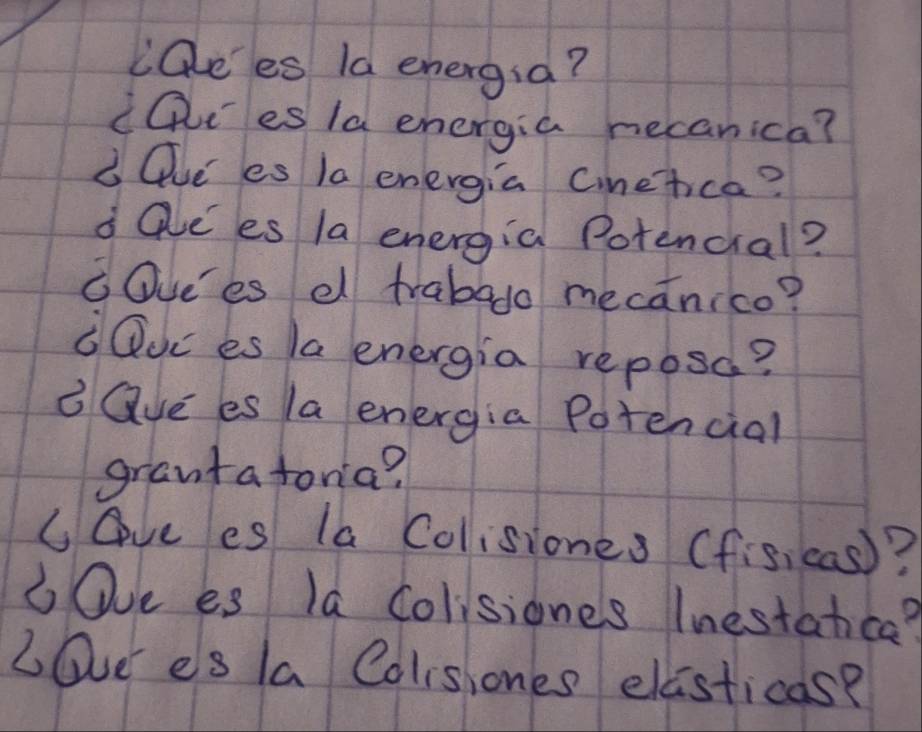 ¿Qué es la energia?
¿Qué es la energia mecanica?
¿Qué es la energía Cinética?
¿Qué es la energia Potencial?
¿Qué es el trabajo mecánico?
¿Qué es la energía reposa?
¿Qué es la energia Potencial
grantatoria?
¿Que es la Colisiones (fisicas)?
¿Que es la Colisiones Inestatica?
¿Qué es la Colisiones elásticas?